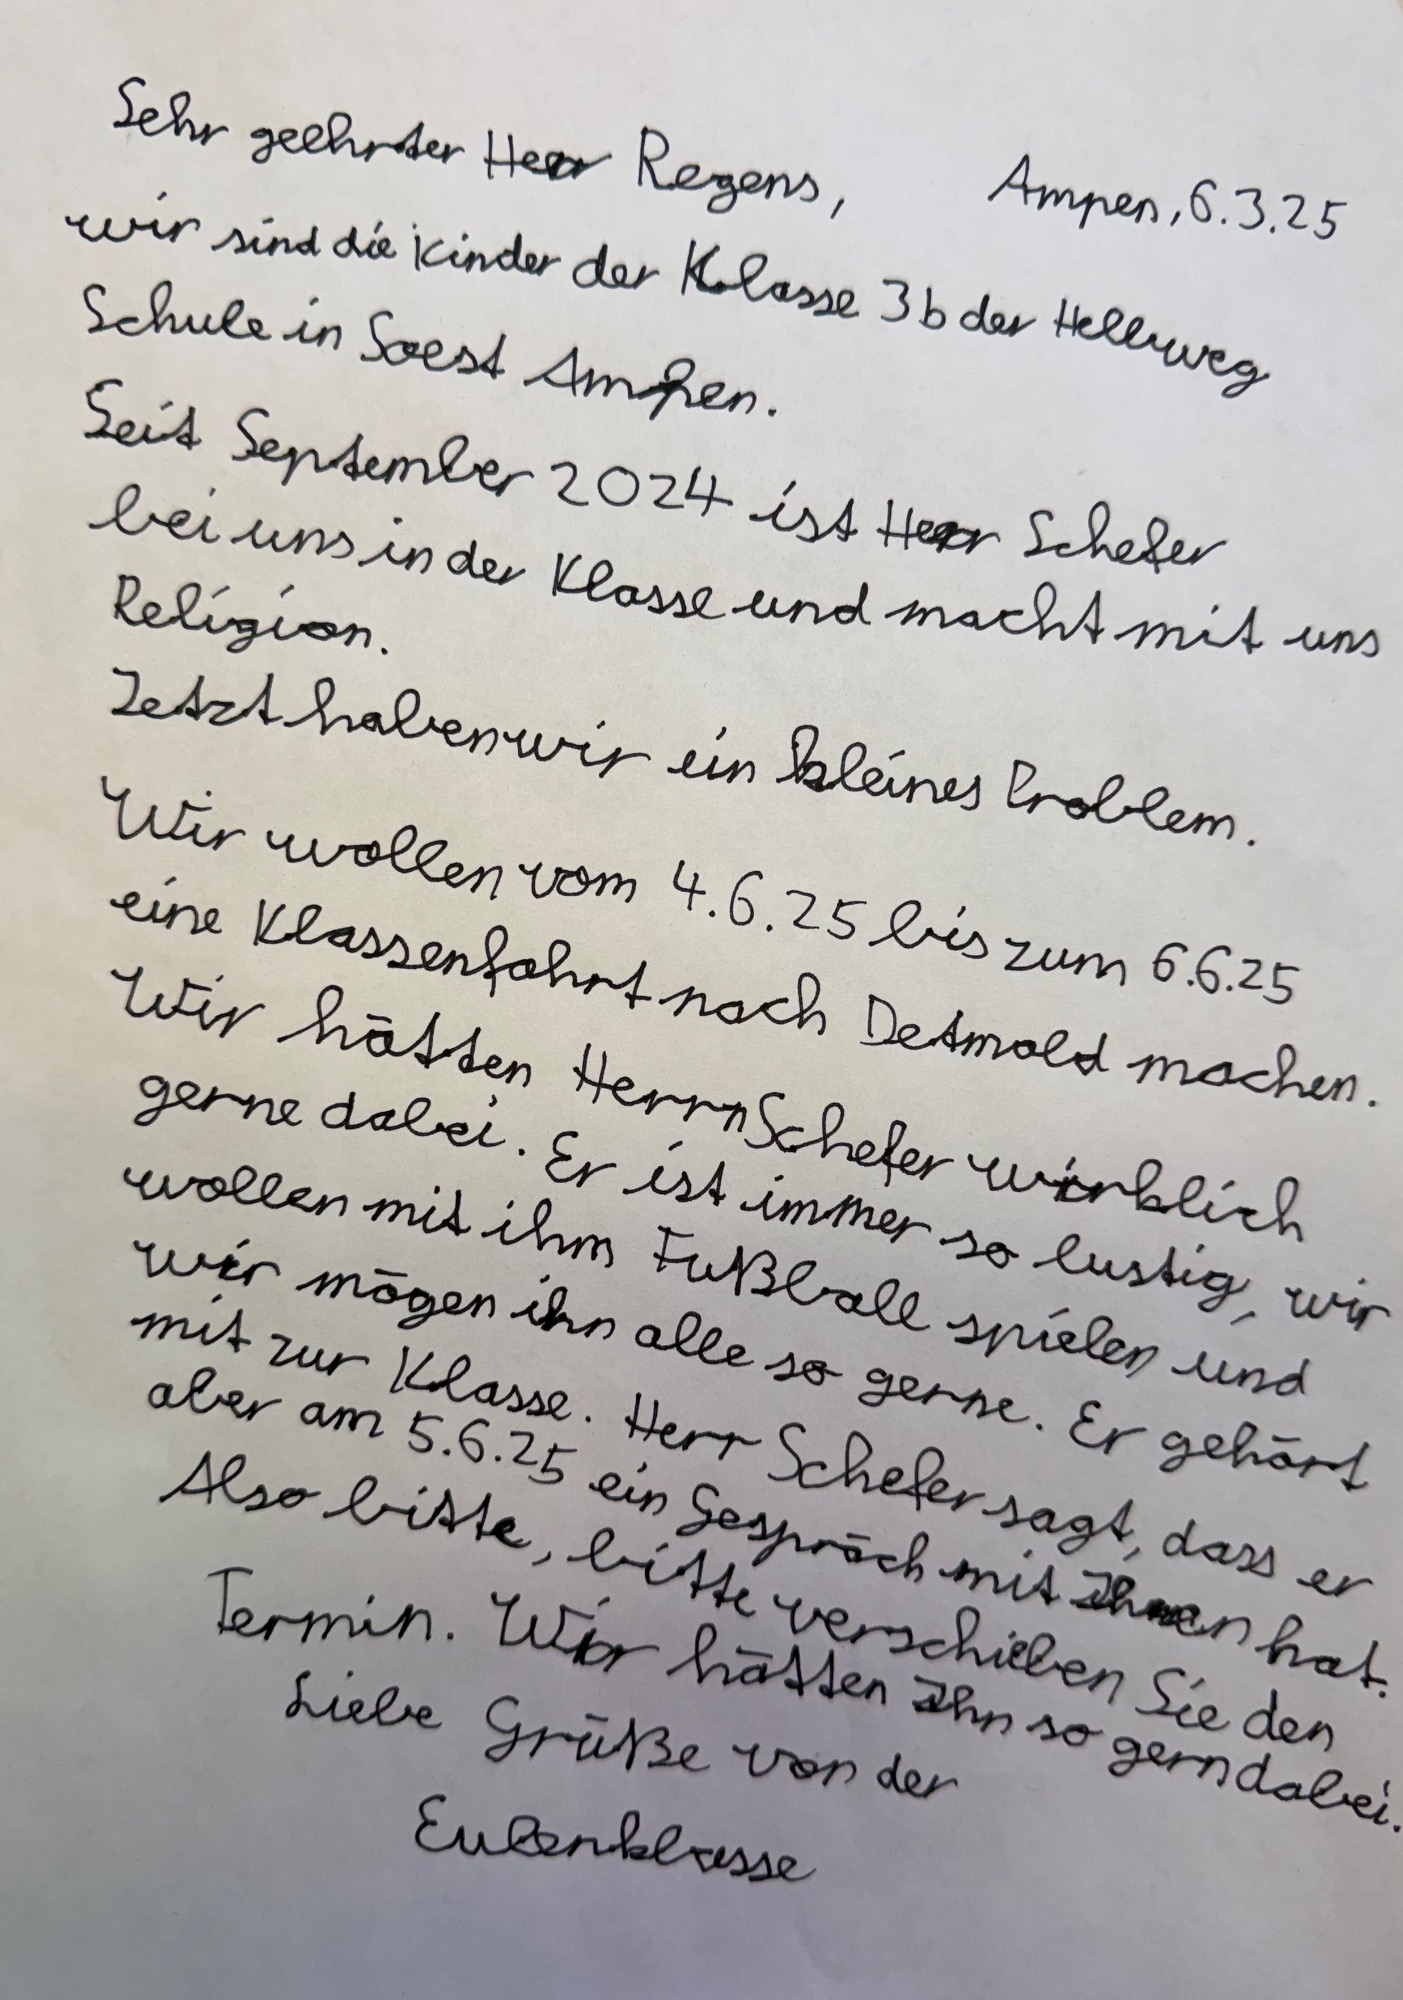 Sehr geehrter Herr Regens, Ampen, 6.3.25
wir sind die Kinder der Klasse 3b der Hellweg
Schule in Soest Ampen.
Seit September 2024 ist Herr Schefer
bei uns in der Klasse und macht mit uns
Religion.
Jetzt haben wir ein kleines Problem.
Wir wollen vom 4.6.25 bis zum 6.6.25
eine Klassenfahrt nach Detmold machen.
Wir hätten Herrn Schefer wirklich
gerne dabei. Er ist immer so lustig, wir
wollen mit ihm Fußball spielen und
wir mögen ihn alle so gerne. Er gehört
mit zur Klasse. Herr Schefer sagt, dass er
aber am 5.6.25 ein Gespräch mit Ihnen hat.
Also bitte, bitte verschieben Sie den
Termin. Wir hätten Ihn so gern dabei.
Liebe Grüße von der
Eulenklasse